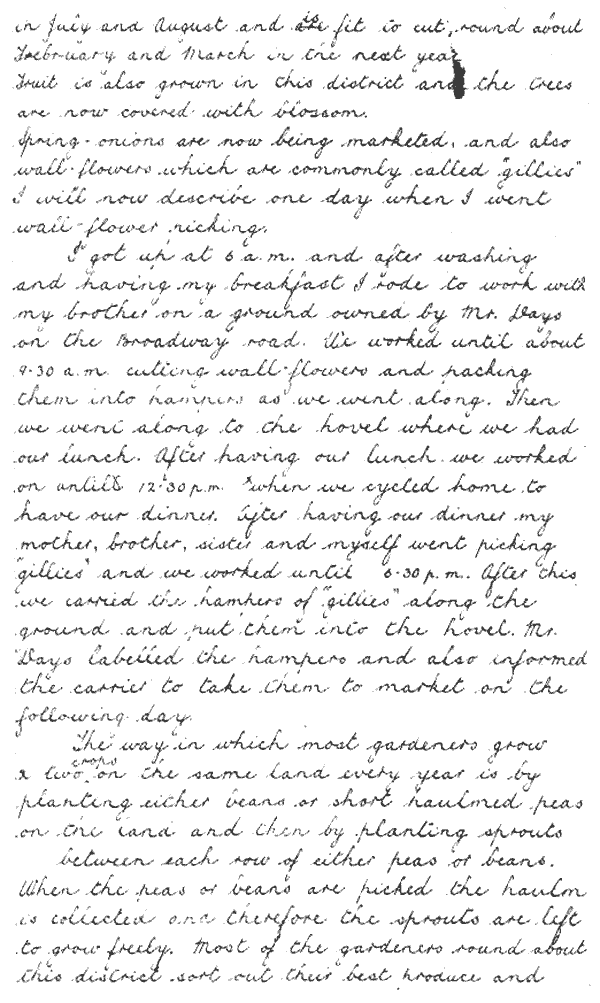 in July and August and is fit to cut, round about
Frebruary and March in the next year
Fruit is also grown in this district and the trees
are now covered with blossom.
Spring-onions are now being marketed, and also
wall-flowers which are commonly called "gillies"
I will now describe one day when I went
wall-flower picking.
I got up at 6 a.m. and after washing
and having my breakfast I rode to work with
my brother on a ground owned by Mr. Days
on the Broadway road. We worked until about
9-30 a.m. cutting wall-flowers and packing
them into hampers as we went along. Then
we went along to the hovel where we had
our lunch. After having our lunch we worked
on until 12-30 p.m. when we cycled home to
have our dinner. After having our dinner my
mother, brother, sister and myself went picking
"gillies" and we worked until 6-30 p.m. After this
we carried the hampers of "gillies" along the
ground and put them into the hovel. Mr.
Days labelled the hampers and also informed
the carrier to take them to market on the
following day.
The way in which most gardeners grow
two crops on the same land every year is by
planting either beans or short haulmed peas
on the land and then by planting sprouts
between each row of either peas or beans.
When the peas or beans are picked the haulm
is collected and therefore the sprouts are left
to grow freely. Most of the gardeners round about
this district sort out their best produce and